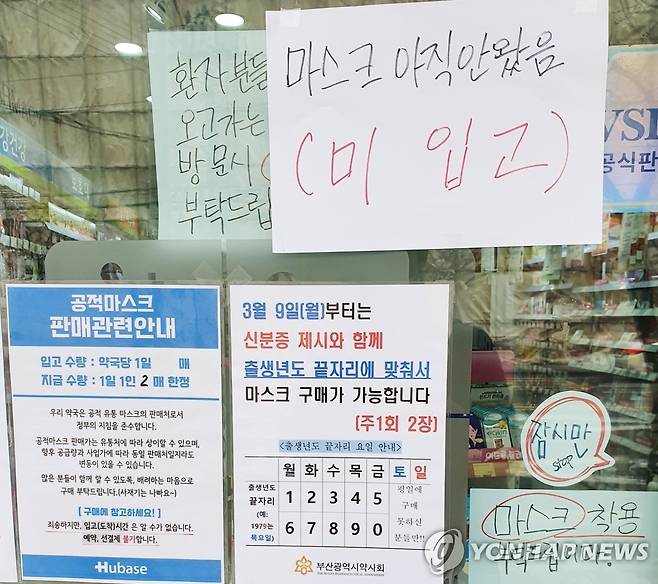 환자분들
오고가는
방문시
부탁드립
마스크 아직안왔음
(미 입고)
공식판
공적마스크
판매관련안내
입고 수량 : 약국당 1일 매
지급 수량 : 1일 1인 2 매 한정
우리 약국은 공적 유통 마스크의 판매처로서
정부의 지침을 준수합니다.
공적마스크 판매가는 유통처에 따라 상이할 수 있으며,
향후 공급량과 사입가에 따라 동일 판매처일지라도
변동이 있을 수 있습니다.
많은 분들이 함께 할 수 있도록, 배려하는 마음으로
구매 부탁드립니다.(사재기는 나빠요~)
[ 구매에 참고하세요! ]
죄송하지만, 입고(도착)시간은 알 수가 없습니다.
예약, 선결제 불가합니다.
Hubase
3월 9일(월)부터는
신분증 제시와 함께
출생년도 끝자리에 맞춰서
마스크 구매가 가능합니다
(주1회 2장)
<출생년도 끝자리 요일 안내>
월 화 수 목 금 토 일
출생년도
끝자리
(예:
1979는
목요일)
1 2 3 4 5
6 7 8 9 0
평일에
구매
못하신
분들만!!
부산광역시약사회
잠시만
STOP
마스크 착용
부탁드립니다.
YONHAP NEWS